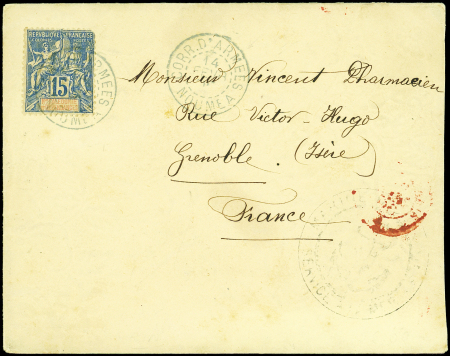 RÉPUBLIQUE FRANÇAISE
COLONIES POSTES
15
CORR. D'ARMÉES
14
NOUMEA
Monsieur Vincent Pharmacien
Rue Victor-Hugo
Grenoble. (Isère)
France